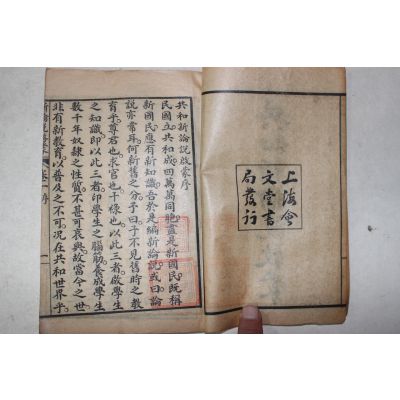 上海會
文堂書
局發行
共和新論說啟蒙序
民國立共和成四萬萬同胞盡是新國民既稱
新國民應有新知識吾於是編新論說或曰論
說亦常耳何新舊之分乎曰子不見舊時之教
育乎尊君也求官也干祿也以此三者啟學生
之知識即以此三者印學生之腦筋養成學生
數千年奴隸之性質不甚可哀與故當今之世
非有新教育以普及之不可况在共和世界乎